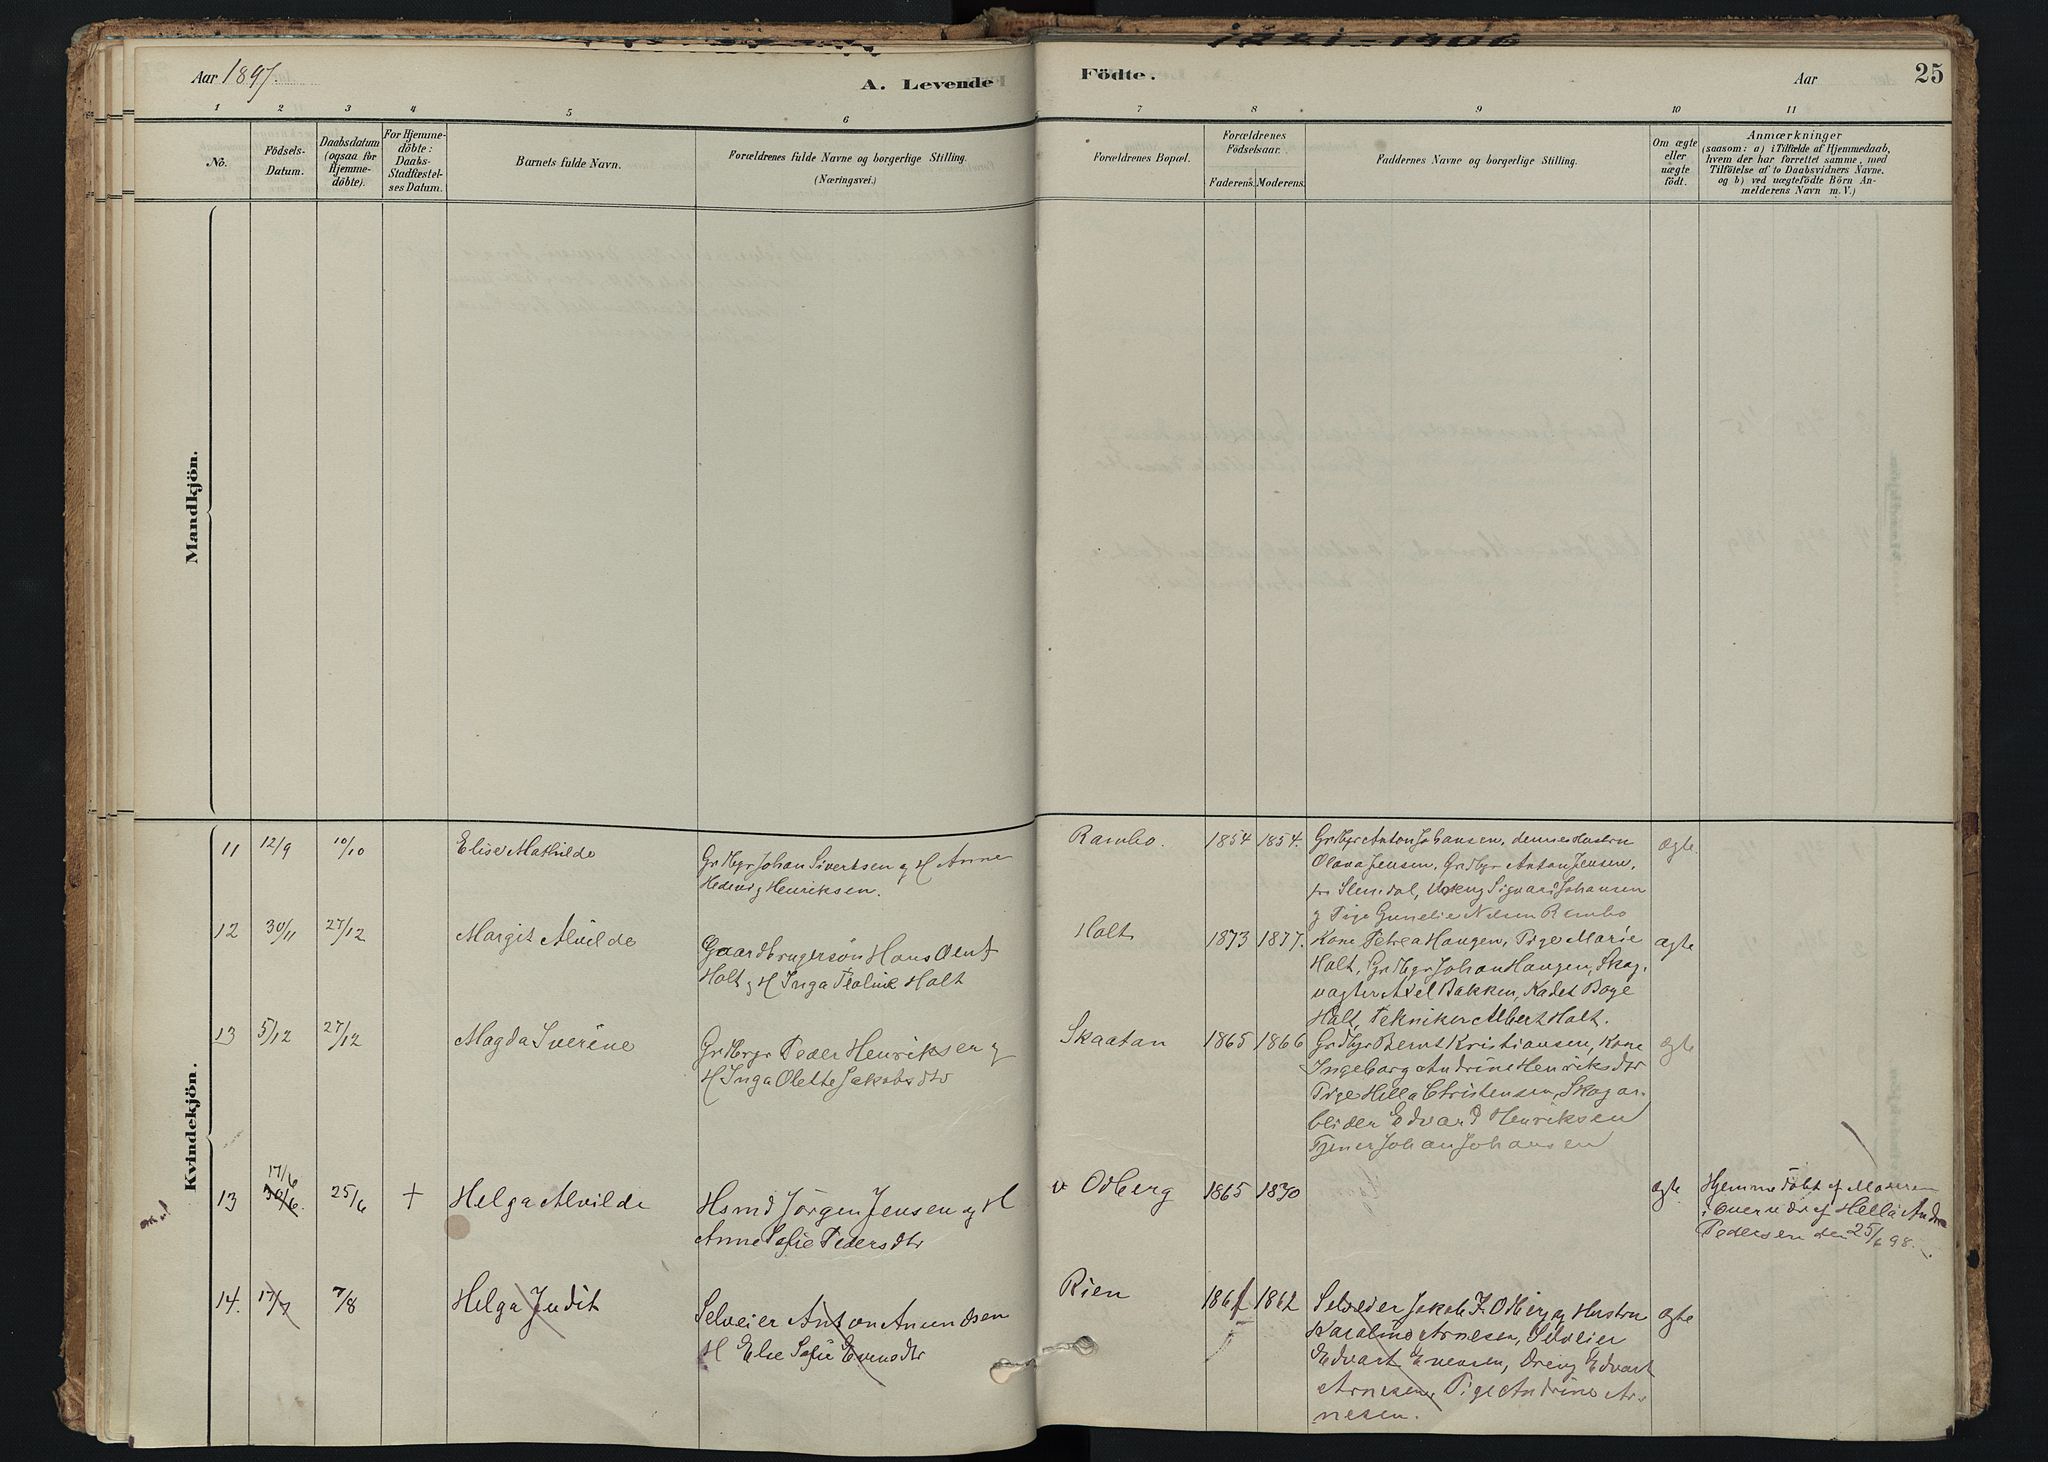 Aar 1897.
A. Levende
Födte.
Aar
25
1 2 3 4 5 6 7 8 9 10 11
No.
Födsels-
Datum.
Daabsdatum
(ogsaa for
Hjemme-
döbte).
For Hjemme-
döbte:
Daabs-
Stadfæstel-
ses Datum.
Barnets fulde Navn.
Forældrenes fulde Navne og borgerlige Stilling.
(Næringsvei.)
Forældrenes Bopæl.
Forældrenes
Födselsaar.
Faderens. Moderens.
Faddernes Navne og borgerlige Stilling.
Om ægte
eller
uægte
födt.
Anmærkninger
(saasom: a) i Tilfælde af Hjemmedaab,
hvem der har forrettet samme, med
Tilföielse af to Daabsvidners Navne.
og b) ved uægtefödte Börn An-
melderens Navn m. V.)
Mandkjön.
Kvindekjön.
11 12/9 10/10 Elise Mathilde
Grdbgr Johan Sivertsen og H Anne
Hedevig Henriksen.
Rambo. 1854 1854.
Grdbgr Anton Johansen, dennes Hustru
Olava Jensen, Grdbgr Anton Jensen,
Slemdal, Sigvart Johansen
og Pige Gunelie Nelsen Rambo
ægte.
12 30/11 27/12 Margit Alvilde
Gaardbrugersön Hans Oluf
Holt og H Inga Paline Holt
Holt 1873 1877.
Kone Petrea Haugen, Pige Marie
Holt, Grdbgr Johan Haugen, Skog.
vagter Axel Bakken, Kadet Boye
Holt, Tekniker Albert Holt.
ægte
13 5/12 27/12 Magda Sverine
Grdbrgr Peder Henriksen og
H Inga Olette Jakobsdtr
Skaatan 1865 1866
Grdbgr Bernt Kristiansen, Kone
Ingeborg Andrine Henriksdtr
Pige Hella Christensen, Skogar-
beider Edvard Henriksen
Tjener Johan Johansen
ægte
13 17/6 30/6 25/6 + Helga Alvilde
Hsmd Jörgen Jensen og H
Anne Sofie Pedersdtr
v Odberg 1865 1870
ægte.
Hjemmedöbt af Moderen
i Overvær af Hella Andrea
Pedersen den 25/6 98.
14. 17/7 7/8 Helga Judit
Selveier Anton Amundsen
H Else Sofie Evensdtr
Rien 1861 1862
Selveier Jakob J. Odberg og Hustru
Karoline Arnesen, Selveier
Edvart Evensen, Dreng Edvart
Arnesen, Pige Andrine Ar-
nesen.
ægte